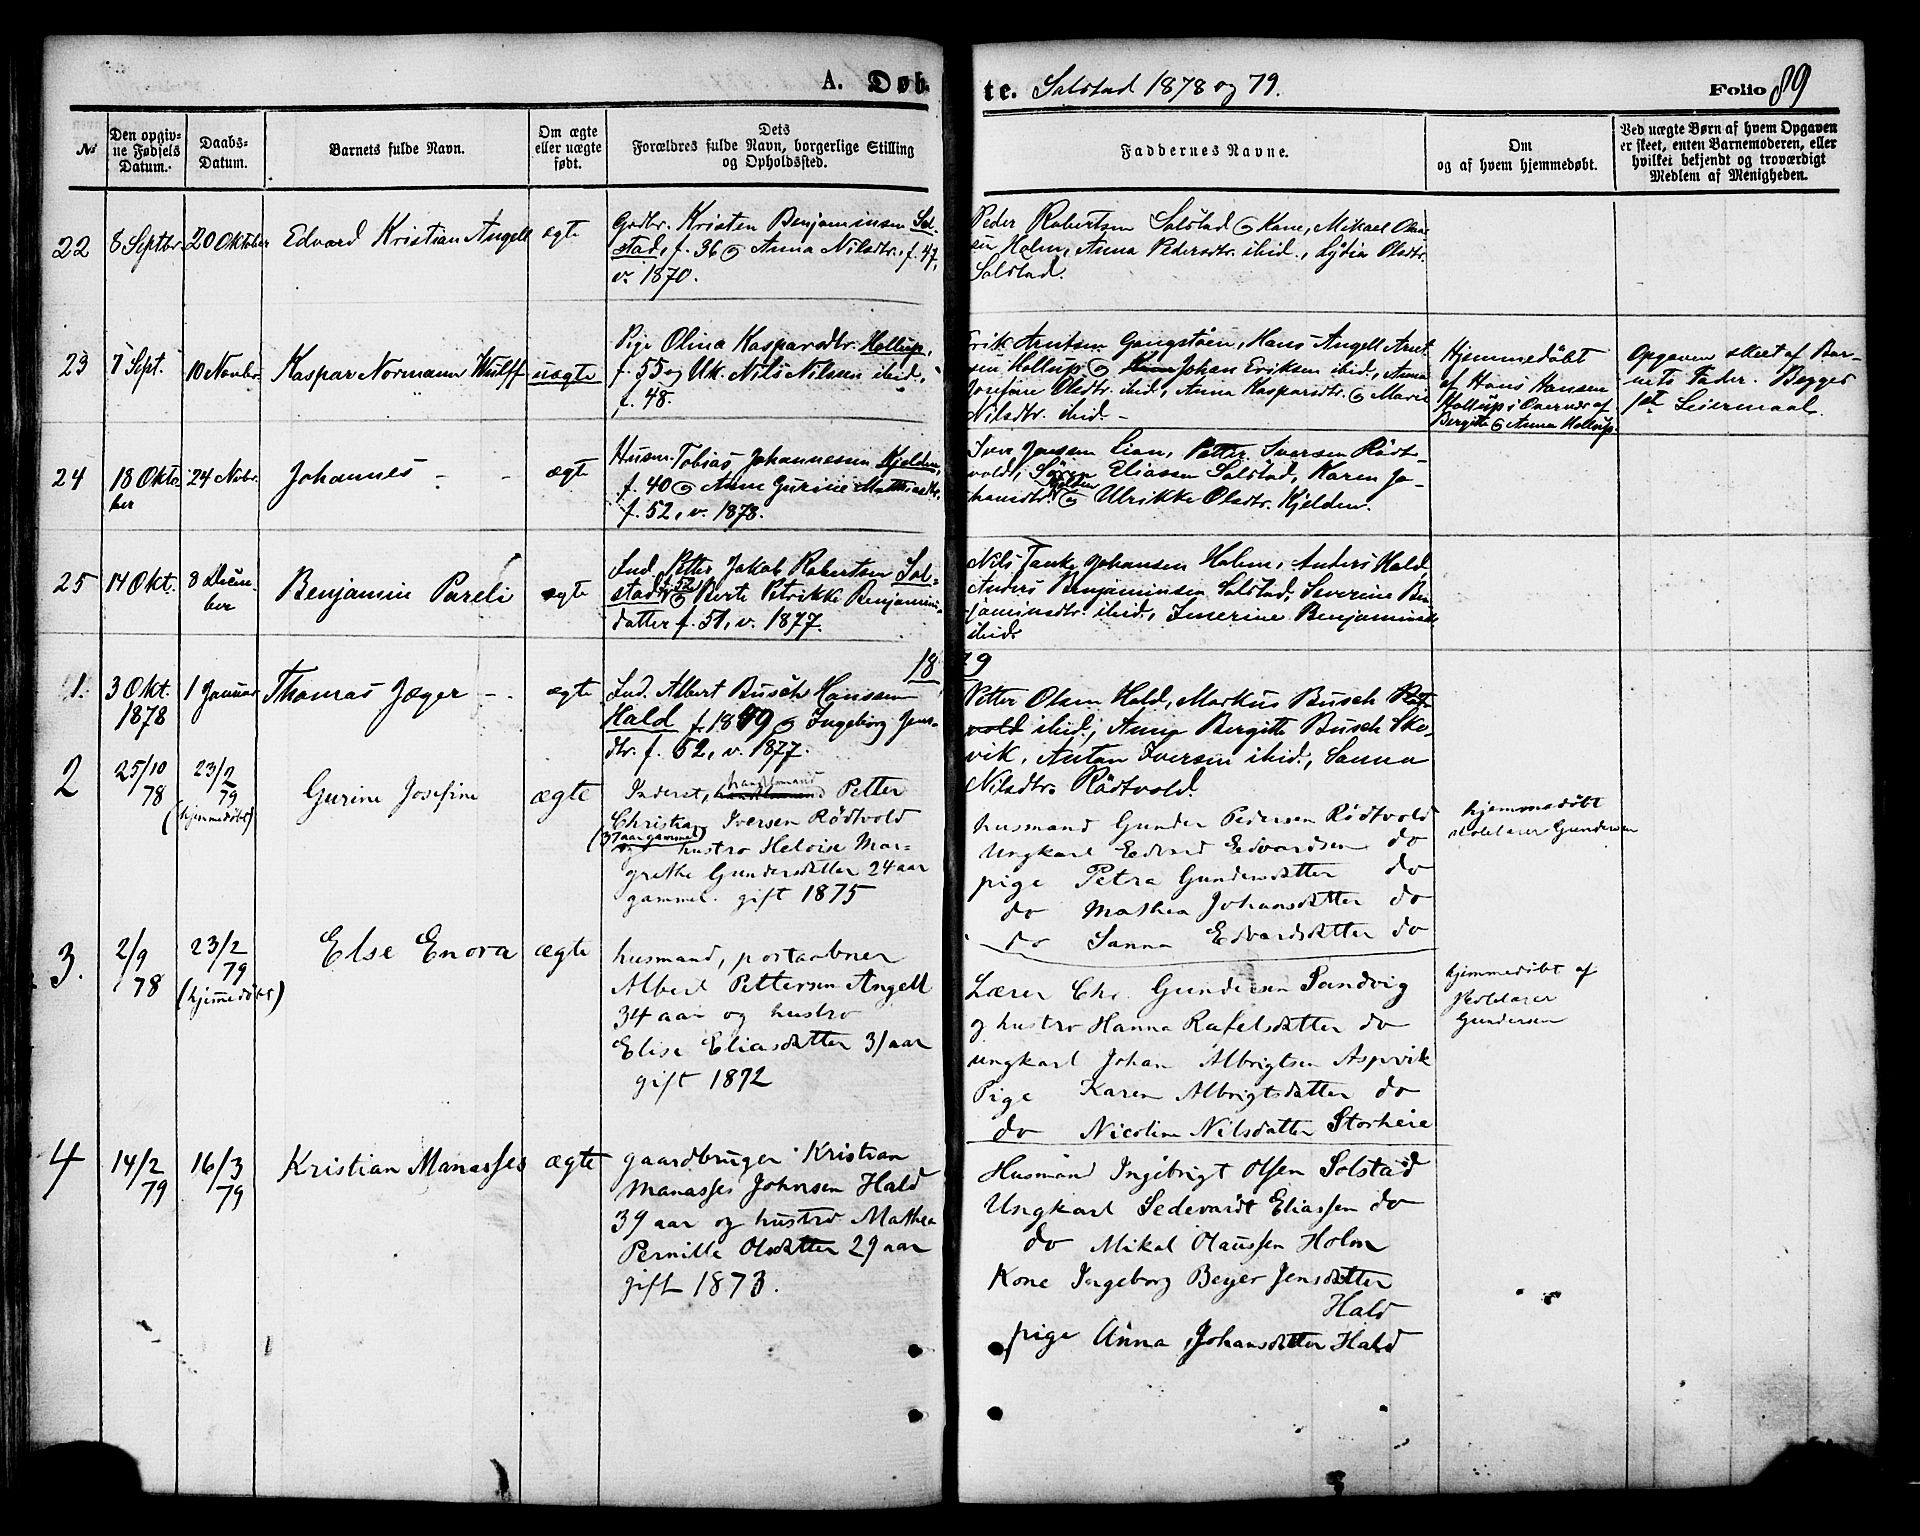 A. Døbte. Solstad 1878 og 79. Folio 89
№
Den opgiv-
ne Fødsels
Datum.
Daabs-
Datum.
Barnets fulde Navn.
Om ægte
eller uægte
født.
Dets
Forældres fulde Navn, borgerlige Stilling
og Opholdssted.
Faddernes Navne.
Om
og af hvem hjemmedøbt.
Ved uægte Børn af hvem Opgaven
er skeet, enten Barnemoderen, eller
hvilket bekjendt og troværdigt
Medlem af Menigheden.
22
8 Septbr.
20 Oktober
Edvard Kristian Angell
ægte
Gadbr. Kristen Benjaminsen Sol-
stad, f. 36 og Anna Nilsdtr., f. 47,
v. 1870.
Peder Robertsen Solstad og Kone, Mikael Olau-
sen Holm, Anna Pedersdtr. ibid., Lydia Olsdtr.
Solstad.
23
7 Sept.
10 Novbr.
Kaspar Normann Wulff
uægte
Pige Olina Kaspardtr. Hollup,
f. 55 og Uk. Nils Nilssen ibid,
f. 48.
Erik Arntsen Gangstøen, Hans Angell Arnt-
sen Hollup og Johan Eriksen ibid, Anna
Josefine Olsdtr. ibid, Anna Kaspardtr. og Marie
Nilsdtr. ibid. -
Hjemmedöbt
af Hans Hansen
Hollup i Overvær af
Birgitte og Anna Hollup.
Opgaven skeet af Bar-
nets Fader. Begges
1ste Leiermaal.
24
18 Okto-
ber
24 Nvbr.
Johannes -
ægte
Husm. Tobias Johannesen Kjelden,
f. 40 og Anne Gurine Mathiasdtr.,
f. 52, v. 1878.
Iver Jensen Lian, Petter Iversen Rödt-
vold, Sören Eliasen Solstad, Karen Jo-
hansdtr. Kjelden og Ulrikke Olsdtr. Kjelden.
25
14 Okt.
8 Decem-
ber
Benjamin Pareli
ægte
Ind. Petter Jakob Robertsen Sol-
stad f. 52 og Berte Petrikke Benjamins-
datter f. 51, v. 1877.
Nils Tanke Johansen Holm, Anders Hald
Anders Benjaminsen Solstad, Severine Ben-
jaminsdtr. ibid., Imerine Benjaminsdt.
ibid.
1879
1.
3 Okt.
1878
1 Januar
Thomas Jæger -
ægte
Ind. Albert Busch Hanssen
Hald f. 1849 og Ingeborg Jens-
dtr. f. 52, v. 1877.
Petter Olsen Hald, Markus Busch Röt-
vold ibid, Anna Bergitte Busch Sko-
vik, Anton Iversen ibid., Sanna
Nilsdtr. Rödtvold.
2
25/10
78
23/2
79
(hjemmedøbt)
Gurine Josefine
ægte
Inderst, handelsmand Petter
Christian Iversen Rödtvold
(37 aar gammel)
og hustro Heloise Mar-
grethe Gundersdatter 24 aar
gammel. gift 1875
husmand Gunder Pedersen Rödtvold
Ungkarl Edvard Edvardsen do
pige Petra Gundersdatter do
do Mathea Johansdatter do
do Sanna Edvardsdatter do
hjemmedøbt
skolelærer Gundersen
3.
2/9
78
23/2
79
(hjemmedøbt)
Else Enora
ægte
husmand, postaabner
Albert Pettersen Angell
34 aar og hustro
Elise Eliasdatter 31 aar
gift 1872
Lærer Chr. Gundersen Sandvig
og hustro Hanna Rafelsdatter do
ungkarl Johan Albrigtsen Aspvik
Pige Karen Albrigtsdatter do
do Nicoline Nilsdatter Storheie
hjemmedøbt af
skolelærer
Gundersen
4
14/2
79
16/3
79
Kristian Manasses
ægte
gaardbruger Kristian
Manasses Johnsen Hald
39 aar og hustro Mathea
Pernille Olsdatter 29 aar
gift 1873.
Husmand Ingebrigt Olsen Solstad
Ungkarl Sedevardt Eliassen do
do Mikal Olaussen Holm
Kone Ingeborg Beyer Jensdatter
Hald
pige Anna Johansdatter Hald